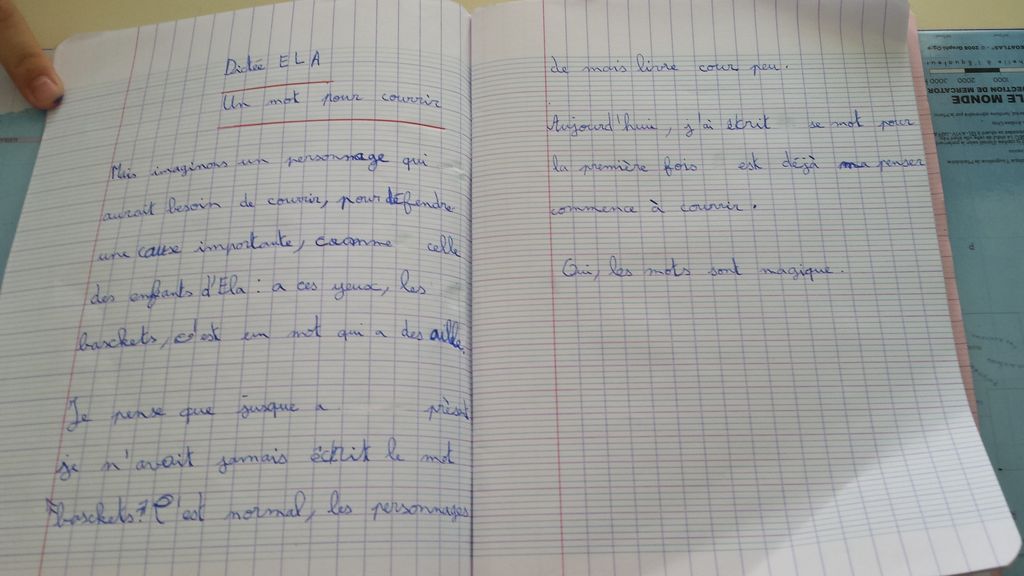 Dictée ELA
Un mot pour courrir
Mais imaginons un personnage qui
aurait besoin de courrir, pour défendre
une cause importante, comme celle
des enfants d'Ela : a ces yeux, les
baschets, c'est un mot qui a des aille.
Je pense que jusque a présent
je n'avait jamais écrit le mot
baschets? C'est normal, les personnages
de mais livre cour peu.
Aujourd'hui, j'ai écrit se mot pour
la première fois est déjà ma penser
commence à courrir.
Oui, les mots sont magique.
LE MONDE
ECTION DE MERCATOR